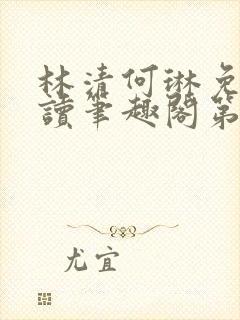 林清何琳免
讀筆趣閣第
尤宜